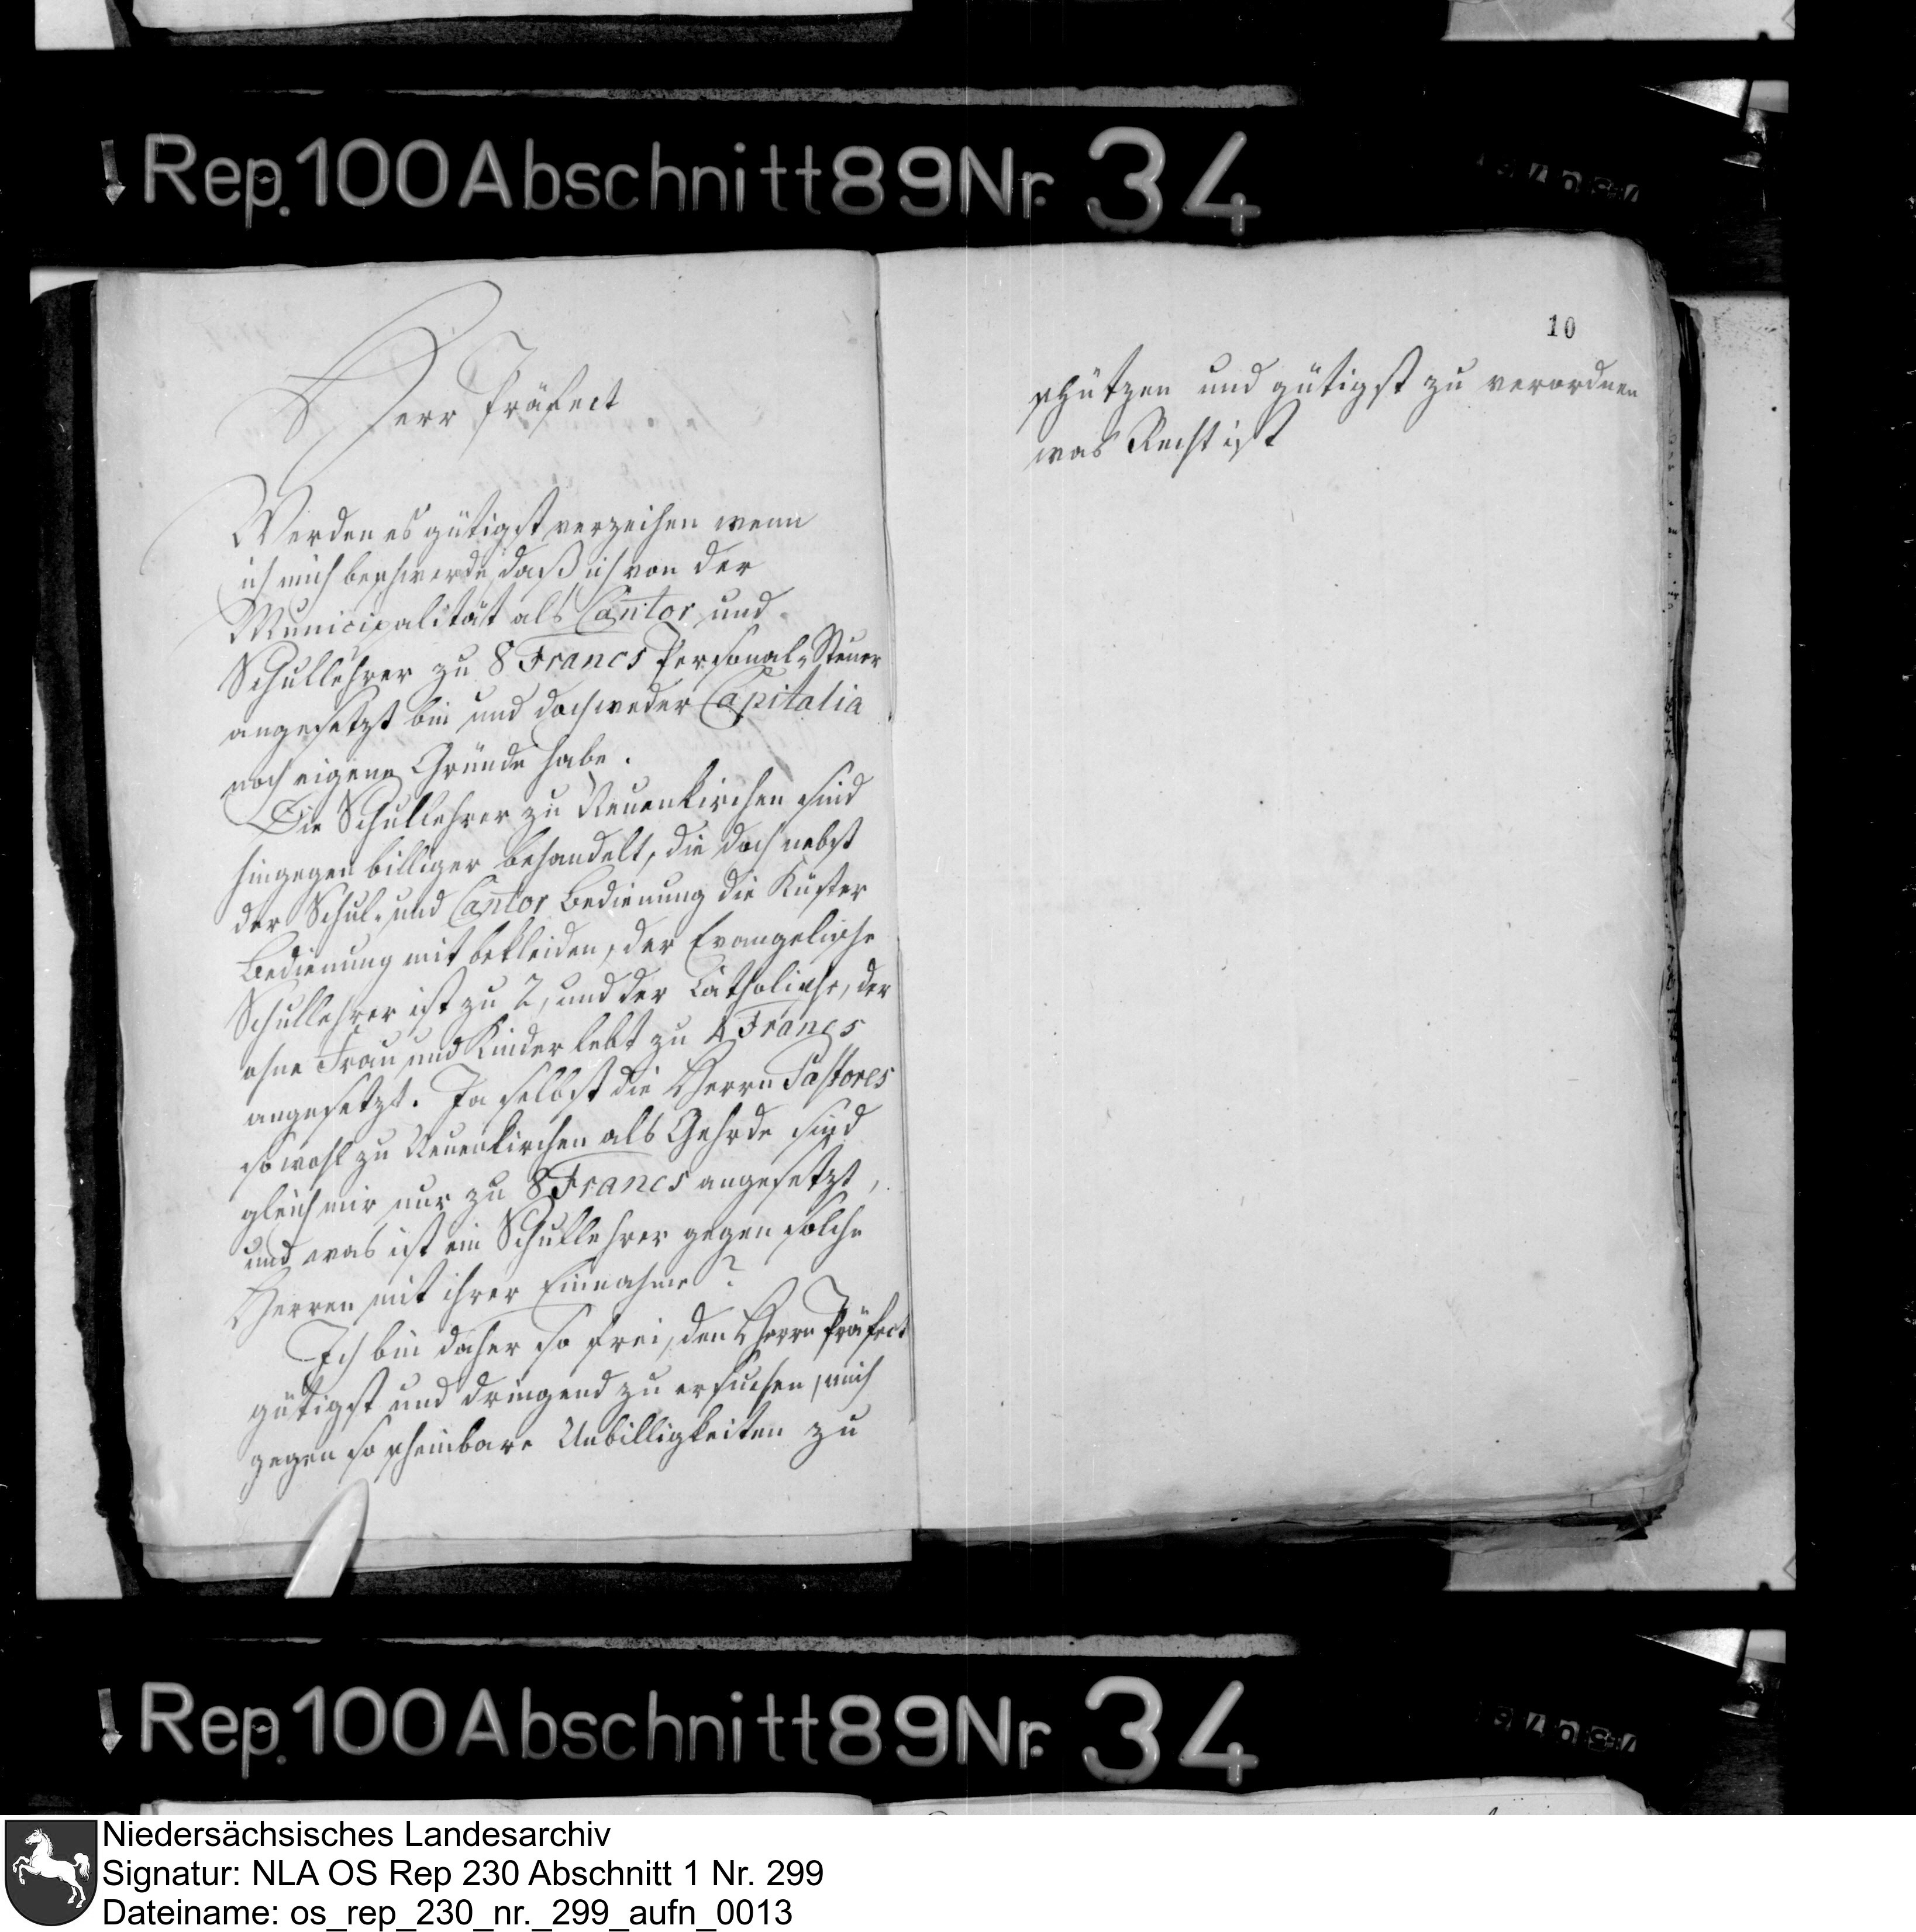 Rep. 100 Abschnitt 89 Nr. 34
Herr Präfect
Werden es gütigst verzeihen wenn
ich mich beschwerde, daß ich von der
Municipalität als Cantor und
Schullehrer zu 8 Francs Personal-Steuer
angesetzt bin und doch weder Capitalia
noch eigene Gründe habe.
Die Schullehrer zu Neuenkirchen sind
hingegen billiger behandelt, die doch nebst
der Schul- und Cantor Bedienung die Küster
Bedienung mit bekleiden, der Evangelische
Schullehrer ist zu 2, und der Catholische, der
ohne Frau und Kinder lebt zu 4 Francs
angesetzt. Ja selbst die Herrn Pastores
sowohl zu Neuenkirchen als Gehrde sind
gleich mir nur zu 8 Francs angesetzt,
und was ist ein Schullehrer gegen solche
Herren mit ihrer Einnahme?
Ich bin daher so frei, den Herrn Präfect
gütigst und dringend zu ersuchen, mich
gegen so scheinbare Unbilligkeiten zu
10
schützen und gütigst zu verordnen
was Recht ist
Rep. 100 Abschnitt 89 Nr. 34
Niedersächsisches Landesarchiv
Signatur: NLA OS Rep 230 Abschnitt 1 Nr. 299
Dateiname: os_rep_230_nr._299_aufn_0013